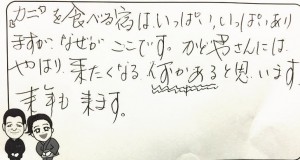 "カニ"を食べる宿は、いっぱい、いっぱいあり
ますが、なぜか ここです。かど君さんには
やはり、来たくなる、何かあると思います
来年も 来ます。